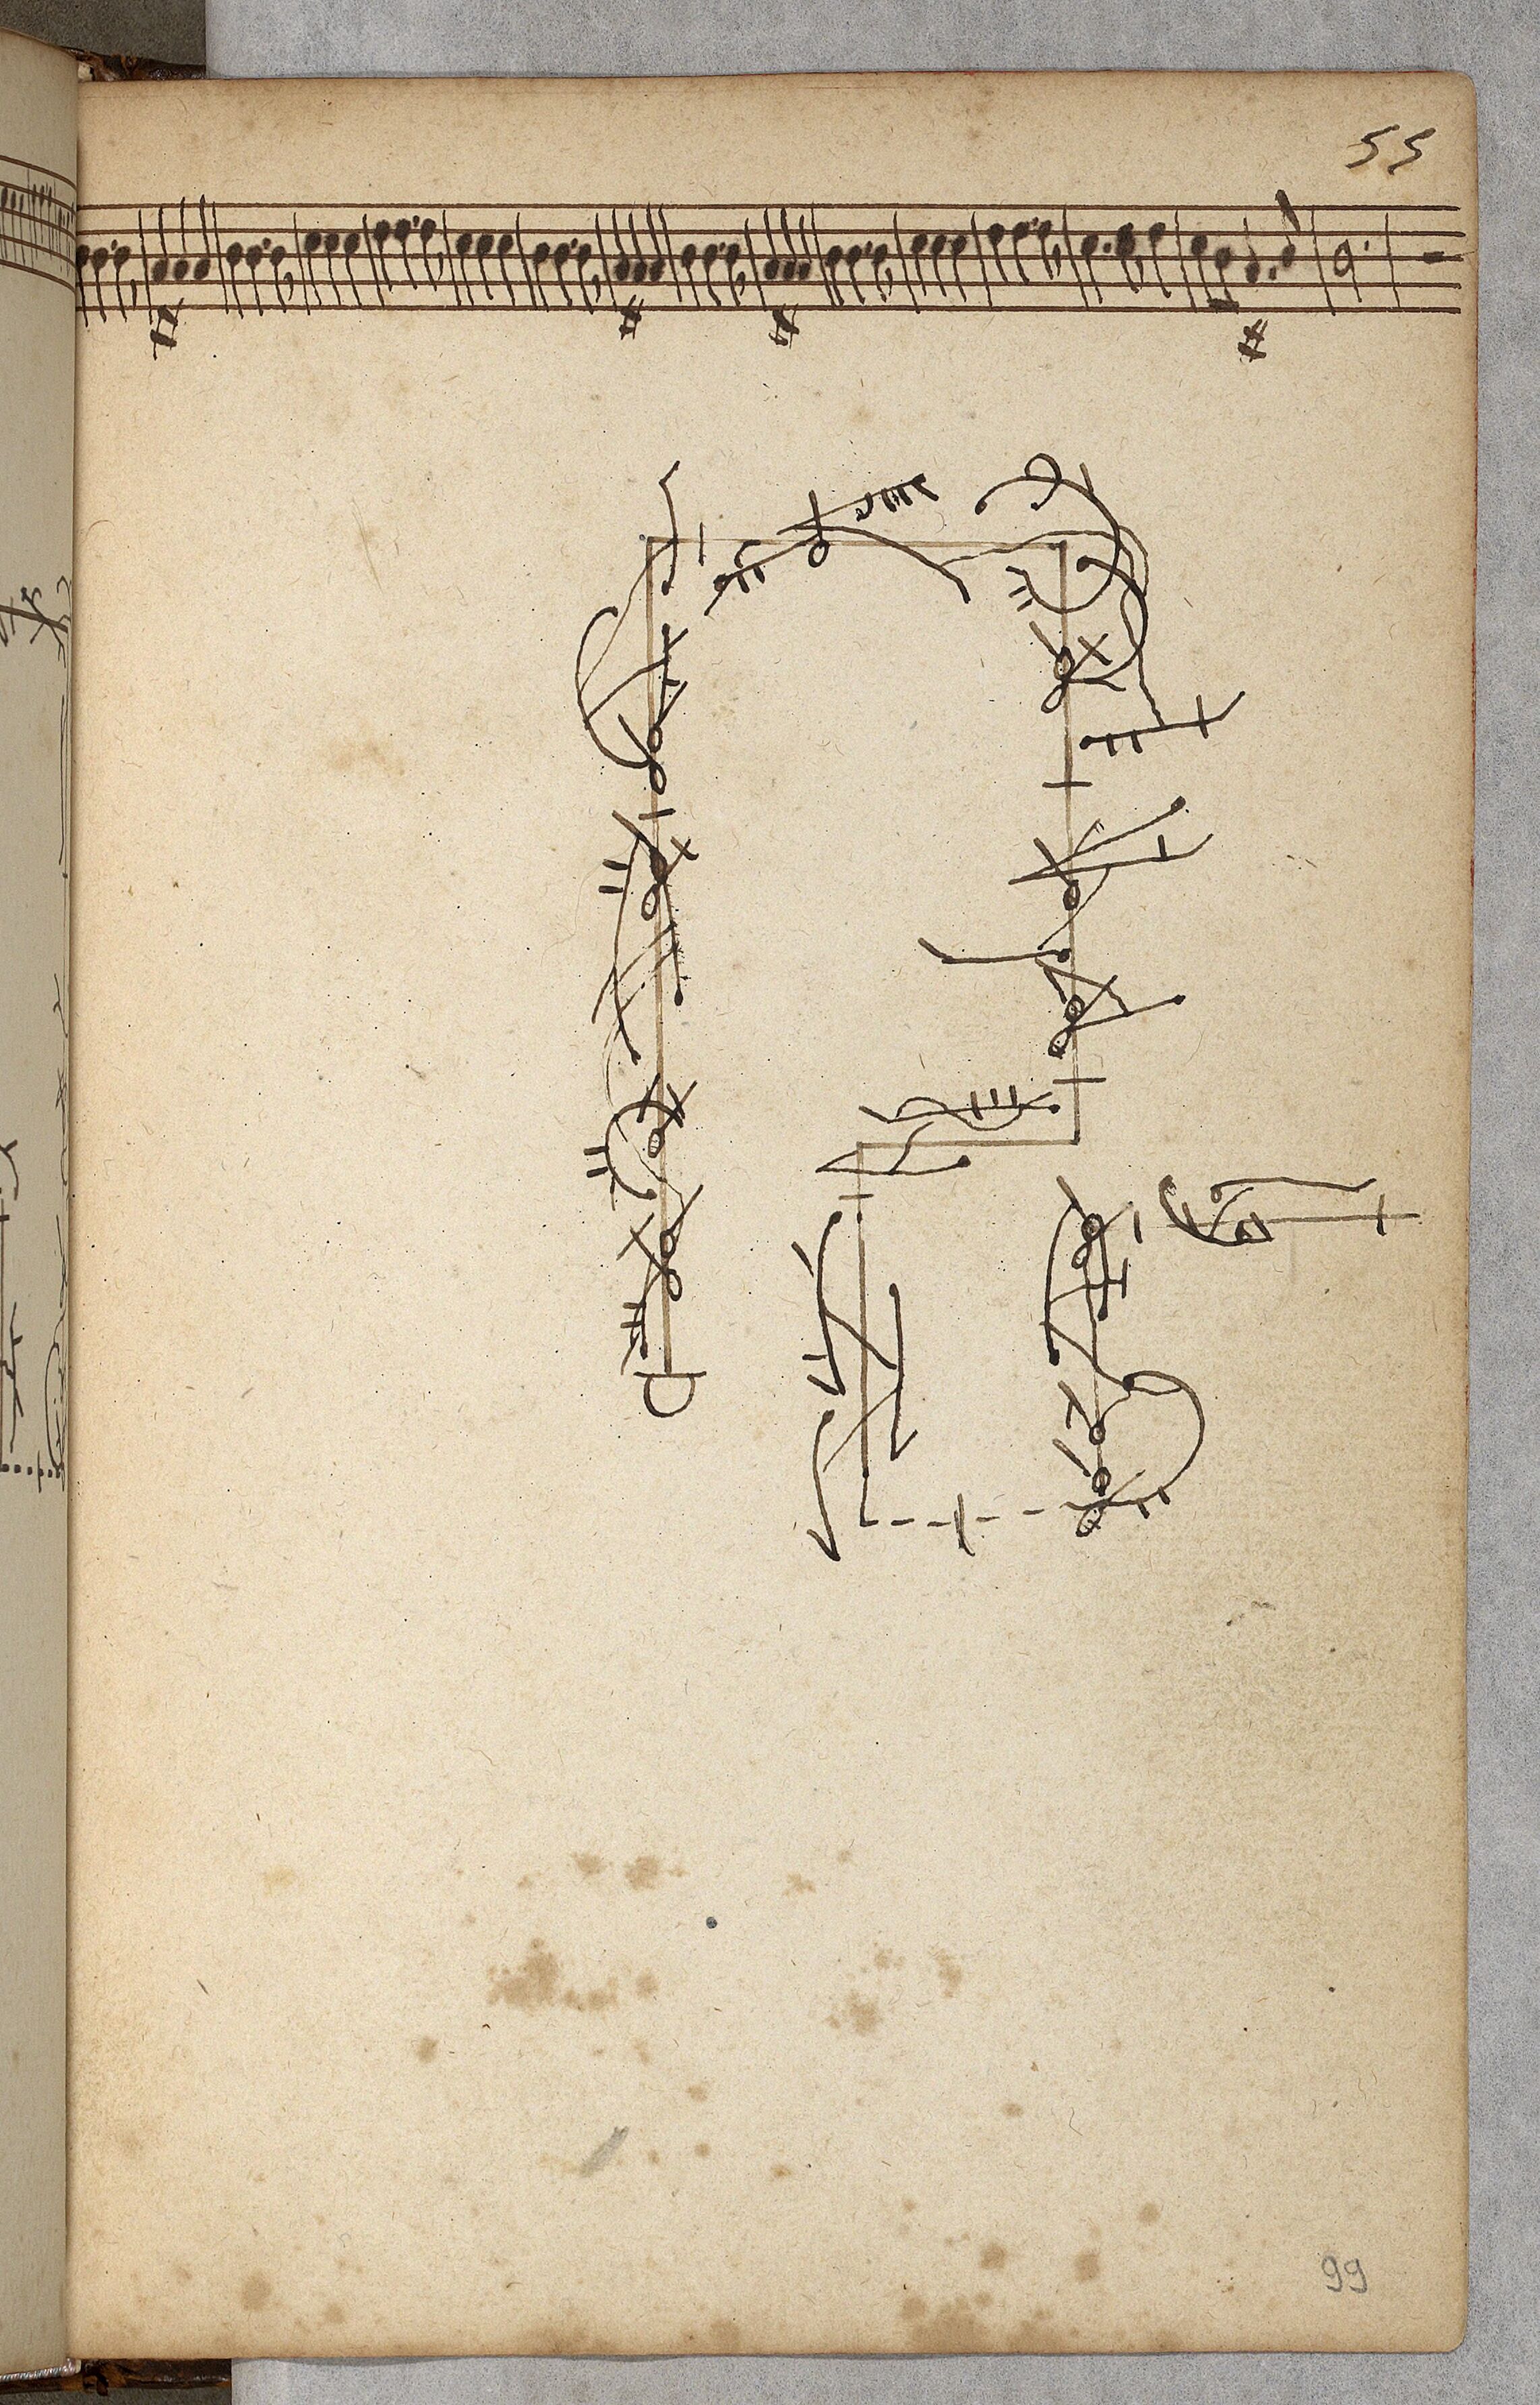 55
99